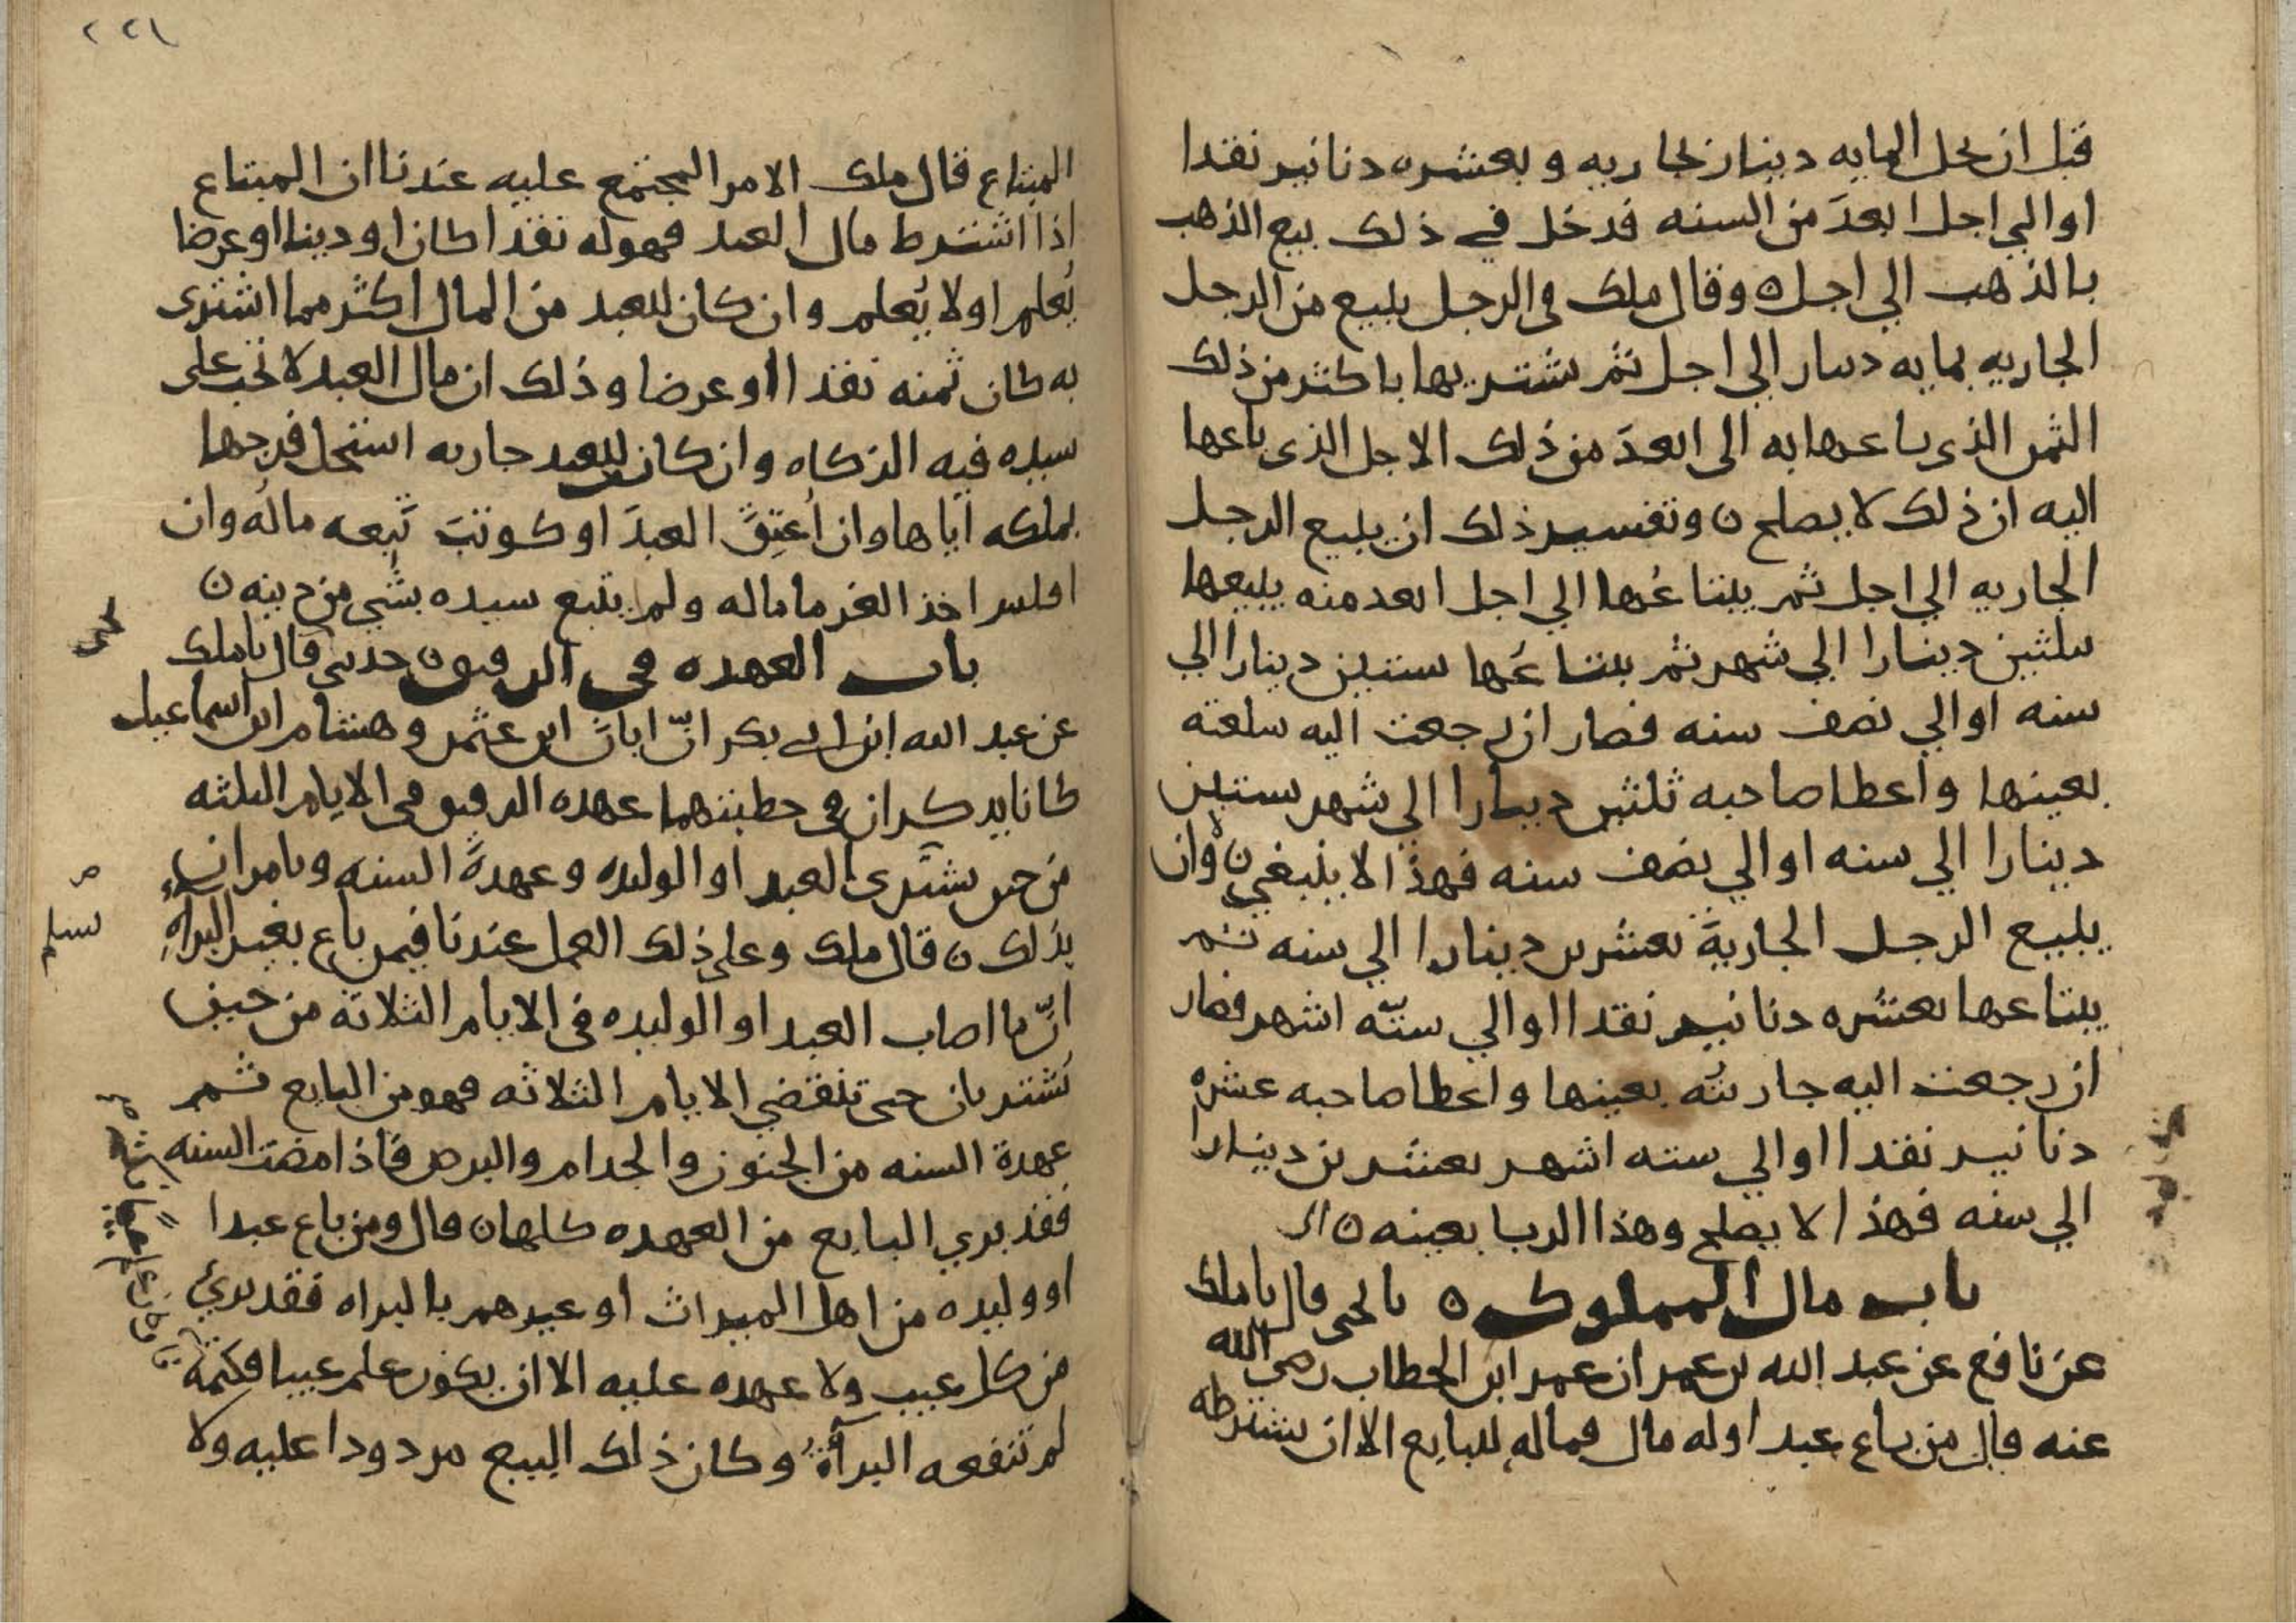 قبل ان يحل المايه دينار بجاريه وبعشره دنانير نقدا
او الي اجل ابعدَ من السنه فدخل في ذلك بيع الذهب
بالذهب الي اجل ه وقال ملك في الرجل يبيع من الرجل
الجاريه بمايه دينار الي اجل ثم يشتريها باكثر من ذلك
الثمن الذي باعها به الى ابعدَ من ذلك الاجل الذي باعها
اليه ان ذلك لا يصلح ه وتفسير ذلك ان يبيع الرجل
الجاريه الي اجل ثم يبتاعُها الي اجل ابعد منه يبيعها
بثلثين دينارا الي شهر ثم يبتاعُها بستين دينارا الي
سنه او الي نصف سنه فصار ان رجعت اليه سلعته
بعينها واعطا صاحبه ثلثين دينارا الي شهر بستين
دينارا الي سنه او الي نصف سنه فهذا لا ينبغي ه وان
يبيع الرجل الجاريةَ بعشرين دينارا الي سنه ثم
يبتاعها بعشره دنانير نقدا او الي ستّه اشهر فصار
ان رجعت اليه جاريتُه بعينها واعطا صاحبه عشره
دنانير نقدا او الي سته اشهر بعشرين دينارا
الي سنه فهذا لا يصلح وهذا الربا بعينه ه
باب مال المملوك ه نا يحيى قال نا ملك
عن نافع عن عبد الله بن عمر ان عمر ابن الخطاب رضي الله
عنه قال من باع عبدا وله مال فماله للبايع الا ان يشترطه
٢٢١
المبتاع قال ملك الامر المجتمع عليه عندنا ان المبتاع
اذا اشترط مال العبد فهو له نقدا كان او دينا او عرضا
يُعلم او لا يُعلم وان كان للعبد من المال اكثر مما اشترى
به كان ثمنه نقدا او عرضا وذلك ان مال العبد لا تجب على
سيده فيه الزكاه وان كان للعبد جاريه استحل فرجها
بملكه اياها وان اُعتِقَ العبدَ او كوتبَ تَبِعه مالُه وان
افلس اخذ الغرما ماله ولم يتبع سيده بشي من دينه ه
باب العهده في الرقيق ه حدثني قال نا ملك
عن عبد الله ابن ابي بكر انّ ابانَ ابن عثمن وهشام ابن اسماعيل
كانا يذكران في خطبتهما عهده الرقيق في الايام الثلثه
من حين يشترى العبد او الوليده وعهدةَ السنه ويامران
بذلك ه قال ملك وعلى ذلك العمل عندنا فيمن باع بغير البراه
انّ ما اصاب العبد او الوليده في الايام الثلاثه من حين
يُشتريان حتى تنقضي الايام الثلاثه فهو من البايع ثم
عهدة السنه من الجنون والجذام والبرص فاذا مضت السنه
فقد بري البايع من العهده كلها ه قال ومن باع عبدا
او وليده من اهل الميراث او غيرهم بالبراه فقد بري
من كل عيب ولا عهده عليه الا ان يكون علم عيبا فكتمه
لم تنفعه البرآةُ وكان ذلك البيع مردودا عليه ولا
يحيى